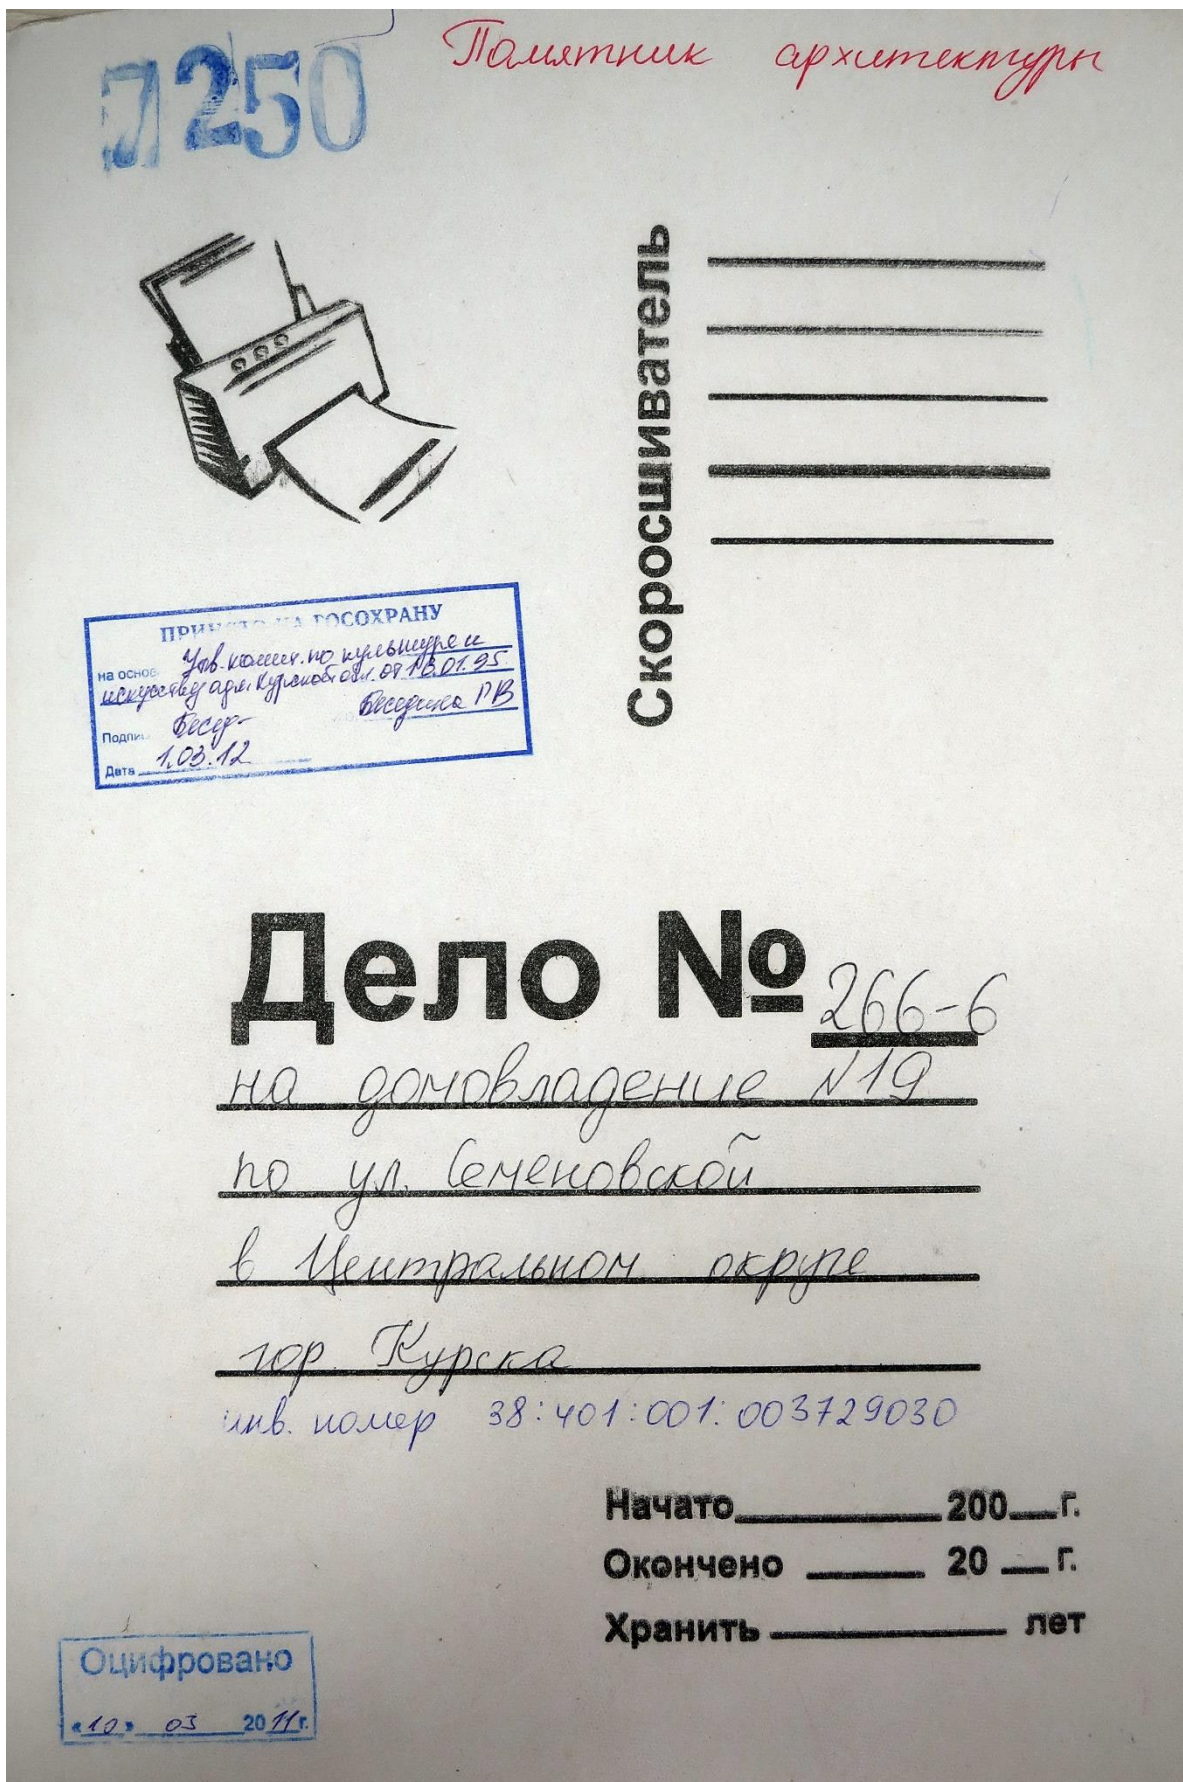 7250
Памятник архитектуры
Скоросшиватель
ПРИНЯТО НА ГОСОХРАНУ
на основ. Упр. комит. по культуре и
искусству адм. Курской обл. от 01.95
Подпи. Бесед- Беседина РВ
Дата 1.03.12
Дело № 266-6
на домовладение №19
по ул. Семеновской
в Центральном округе
гор. Курска
инв. номер 38:401:001:003729030
Начато 200 г.
Окончено 20 г.
Хранить лет
Оцифровано
«10» 03 2011 г.